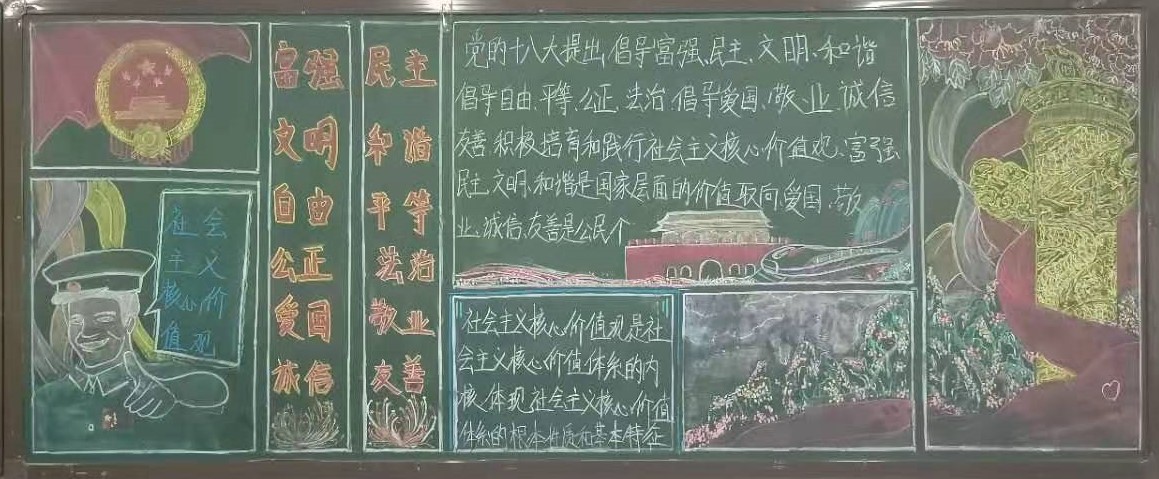 社会
主义
核心价
值观
富强
文明
自由
公正
爱国
诚信
民主
和谐
平等
法治
敬业
友善
党的十八大提出,倡导富强、民主、文明、和谐
倡导自由、平等、公正、法治,倡导爱国、敬业、诚信
友善,积极培育和践行社会主义核心价值观、富强
民主、文明、和谐是国家层面的价值取向,爱国、敬
业、诚信、友善是公民个
社会主义核心价值观是社
会主义核心价值体系的内
核,体现社会主义核心价值
体系的根本性质和基本特征